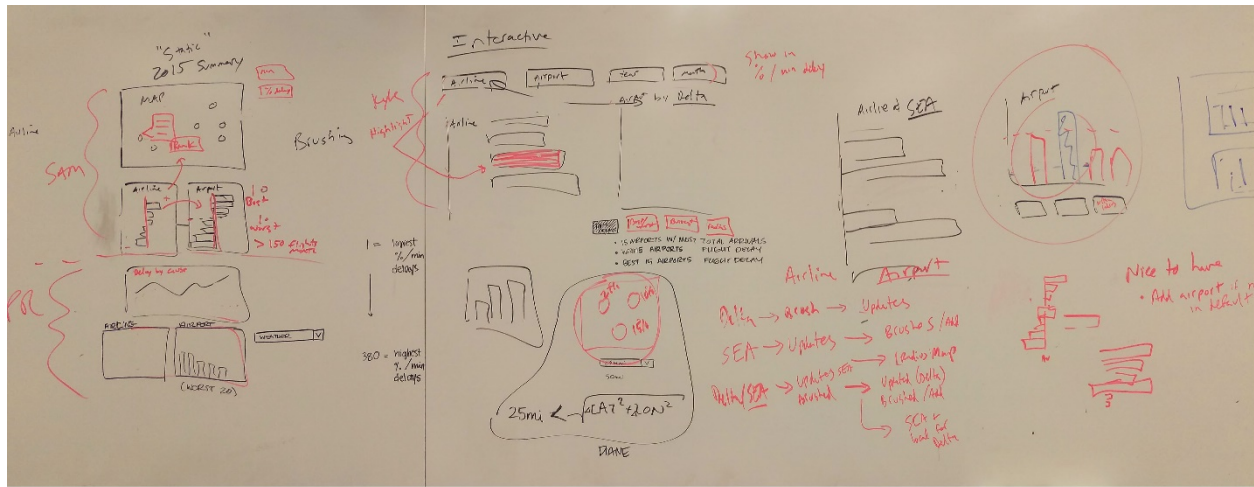 "Static"
2015 Summary
min
% delay
MAP
Rank
Airline
SAM
Airline
Airport
10
Best
10
Worst
> 150 flights
Delay by cause
AIRLINE
AIRPORT
WEATHER V
(WORST 20)
1 = lowest
%/min
delays
380 = highest
%/min
delays
Brushing
Interactive
Kyle
Highlight
Airline
Airport
Year
Month
Show in
%/min delay
Airport by Delta
Airline
• 15 AIRPORTS W/ MOST TOTAL ARRIVALS
• WORST AIRPORTS FLIGHT DELAY
• BEST 15 AIRPORTS FLIGHT DELAY
15%
25mi < √LAT² + LON²
DIANE
Airline @ SEA
Airport
Airline
Airport
Delta → Brush → Updates
SEA → Updates → Brushes/Add
(Radius Map)
Delta/SEA → Updates SEA
Brushed → Updated (Delta)
Brushed/Add
SEA +
local for
Delta
Nice to have
• Add airport if
in default